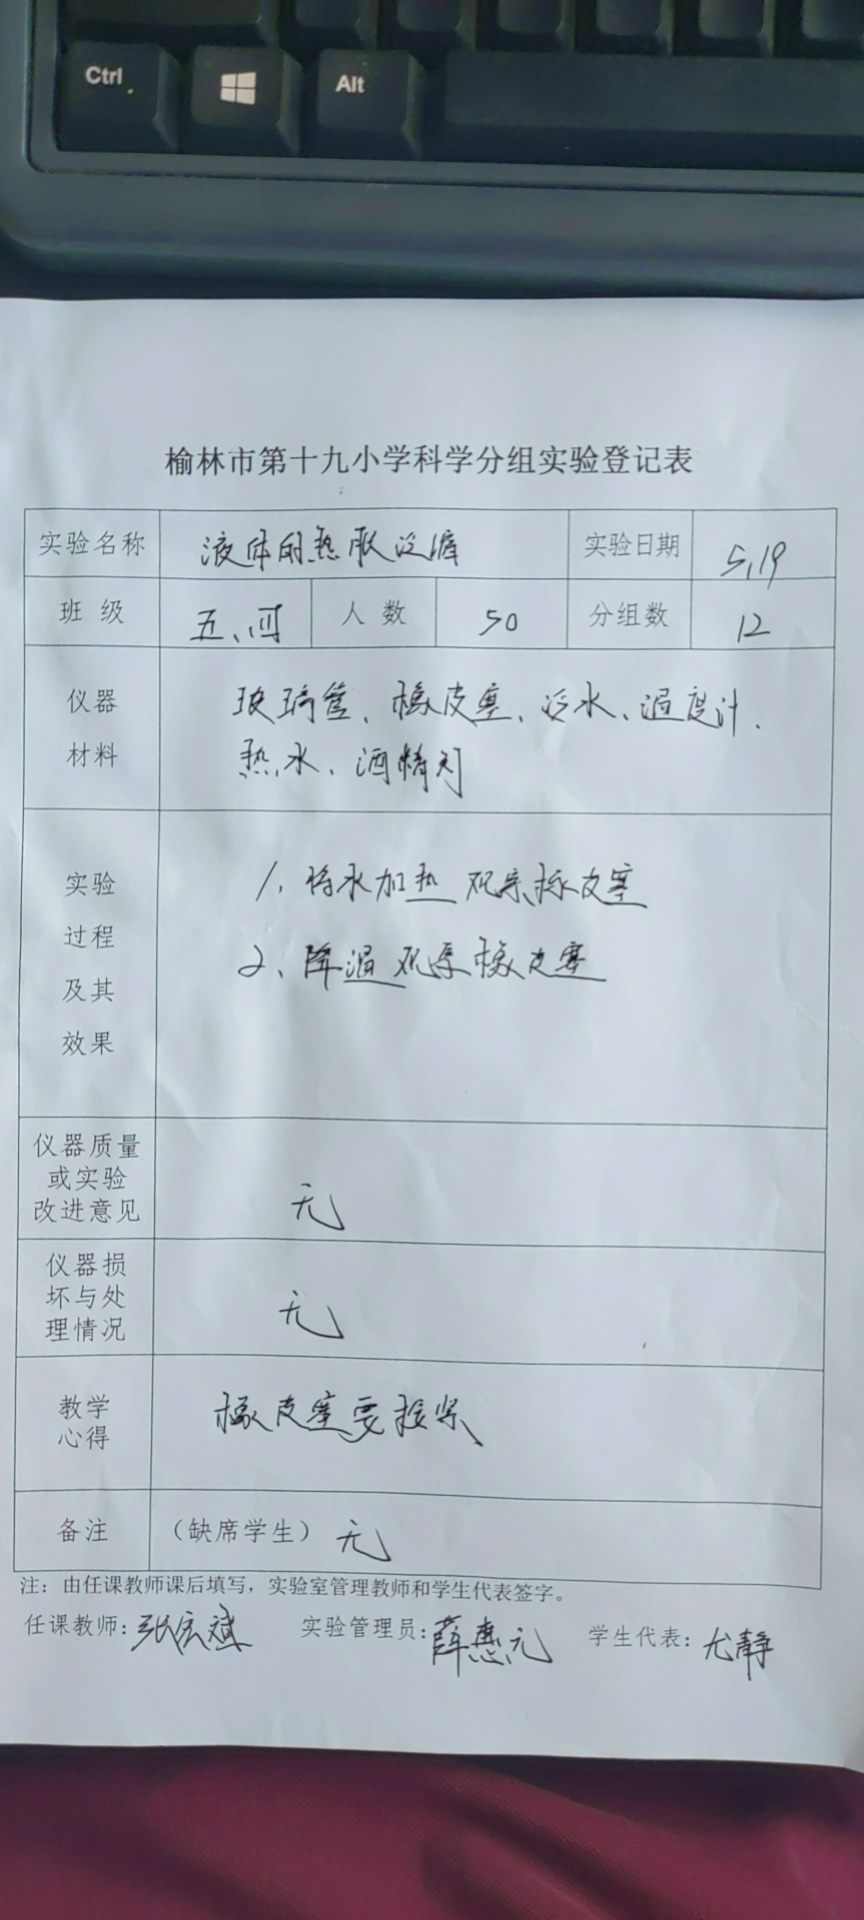 Ctrl
Alt
榆林市第十九小学科学分组实验登记表
实验名称 液体的热胀冷缩 实验日期 5.19
班 级 五.四 人 数 50 分组数 12
仪器 玻璃管、橡皮塞、冷水、温度计、
材料 热水、酒精灯
实验 1、将水加热 观察橡皮塞
过程 2、降温 观察橡皮塞
及其
效果
仪器质量
或实验 无
改进意见
仪器损
坏与处 无
理情况
教学 橡皮塞要塞紧
心得
备注 （缺席学生） 无
注：由任课教师课后填写，实验室管理教师和学生代表签字。
任课教师：张宏斌 实验管理员：薛惠元 学生代表：尤静